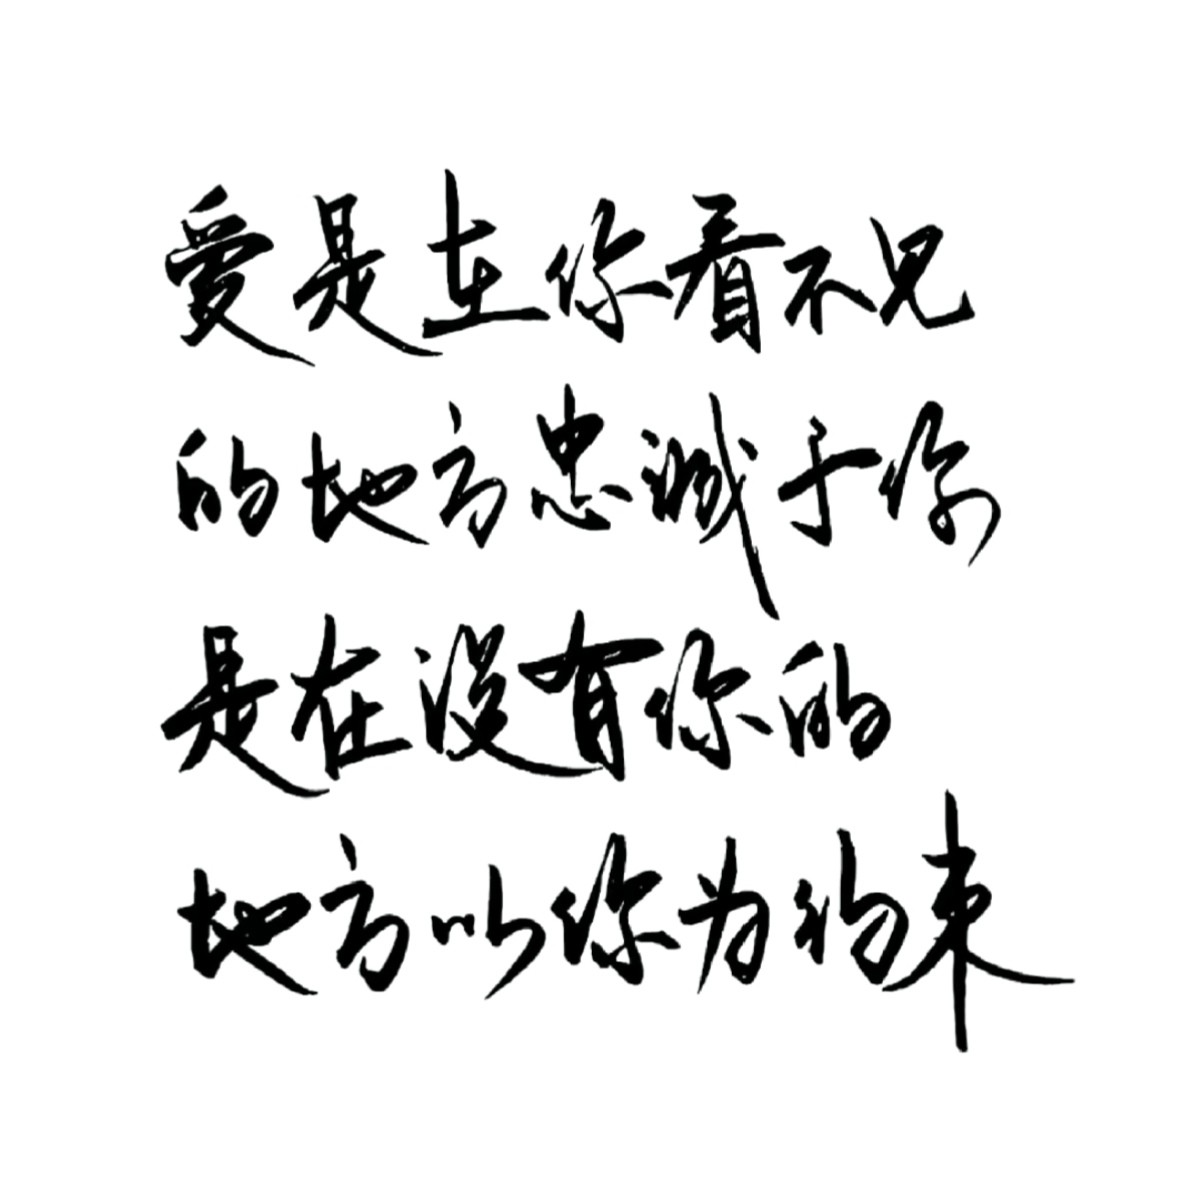 爱是在你看不见
的地方忠诚于你
是在没有你的
地方以你为约束